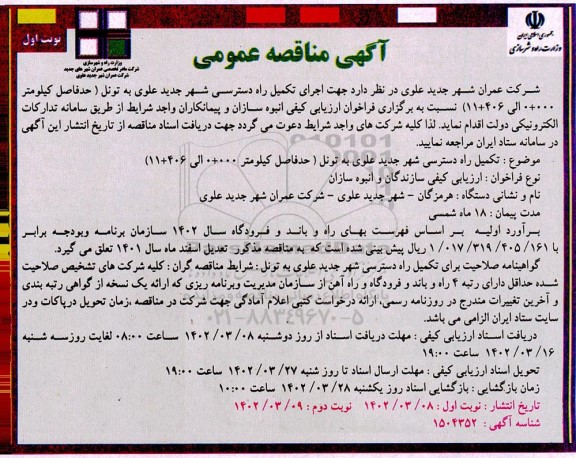 جمهوری اسلامی ایران
وزارت راه و شهرسازی
آگهی مناقصه عمومی
وزارت راه و شهرسازی
شرکت مادر تخصصی عمران شهر های جدید
شرکت عمران شهر جدید علوی
نوبت اول
شرکت عمران شهر جدید علوی در نظر دارد جهت اجرای تکمیل راه دسترسی شهر جدید علوی به تونل ( حدفاصل کیلومتر
۰۰۰+۰ الی ۴۰۶+۱۱) نسبت به برگزاری فراخوان ارزیابی کیفی انبوه سازان و پیمانکاران واجد شرایط از طریق سامانه تدارکات
الکترونیکی دولت اقدام نماید. لذا کلیه شرکت های واجد شرایط دعوت می گردد جهت دریافت اسناد مناقصه از تاریخ انتشار این آگهی
در سامانه ستاد ایران مراجعه نمایید.
موضوع : تکمیل راه دسترسی شهر جدید علوی به تونل ( حدفاصل کیلومتر ۰۰۰+۰ الی ۴۰۶+۱۱)
نوع فراخوان : ارزیابی کیفی سازندگان و انبوه سازان
نام و نشانی دستگاه : هرمزگان - شهر جدید علوی - شرکت عمران شهر جدید علوی
مدت پیمان : ۱۸ ماه شمسی
برآورد اولیه بر اساس فهرست بهای راه و باند و فرودگاه سال ۱۴۰۲ سازمان برنامه وبودجه برابر
با ۱/۰۱۷/۳۱۹/۴۰۵/۱۶۱ ریال پیش بینی شده است که به مناقصه مذکور، تعدیل اسفند ماه سال ۱۴۰۱ تعلق می گیرد.
گواهینامه صلاحیت برای تکمیل راه دسترسی شهر جدید علوی به تونل : شرایط مناقصه گران : کلیه شرکت های تشخیص صلاحیت
شده حداقل دارای رتبه ۴ راه و باند و فرودگاه و راه آهن از سازمان مدیریت وبرنامه ریزی که ارائه یک نسخه از گواهی رتبه بندی
و آخرین تغییرات مندرج در روزنامه رسمی، ارائه درخواست کتبی اعلام آمادگی جهت شرکت در مناقصه ،زمان تحویل درپاکات ودر
سایت ستاد ایران الزامی می باشد.
دریافت اسناد ارزیابی کیفی : مهلت دریافت اسناد از روز دوشنبه ۰۸/ ۰۳/ ۱۴۰۲ ساعت ۰۸:۰۰ لغایت روزسه شنبه
۱۶/ ۰۳/ ۱۴۰۲ ساعت ۱۹:۰۰
تحویل اسناد ارزیابی کیفی : مهلت ارسال اسناد تا روز شنبه ۲۷/ ۰۳/ ۱۴۰۲ ساعت ۱۹:۰۰
زمان بازگشایی : بازگشایی اسناد روز یکشنبه ۲۸/ ۰۳/ ۱۴۰۲ ساعت ۱۰:۰۰
تاریخ انتشار : نوبت اول : ۰۸/ ۰۳/ ۱۴۰۲ نوبت دوم : ۰۹/ ۰۳/ ۱۴۰۲
شناسه آگهی : ۱۵۰۴۳۵۲
۰۲۱-۸۸۳۴۹۶۷۰-۵